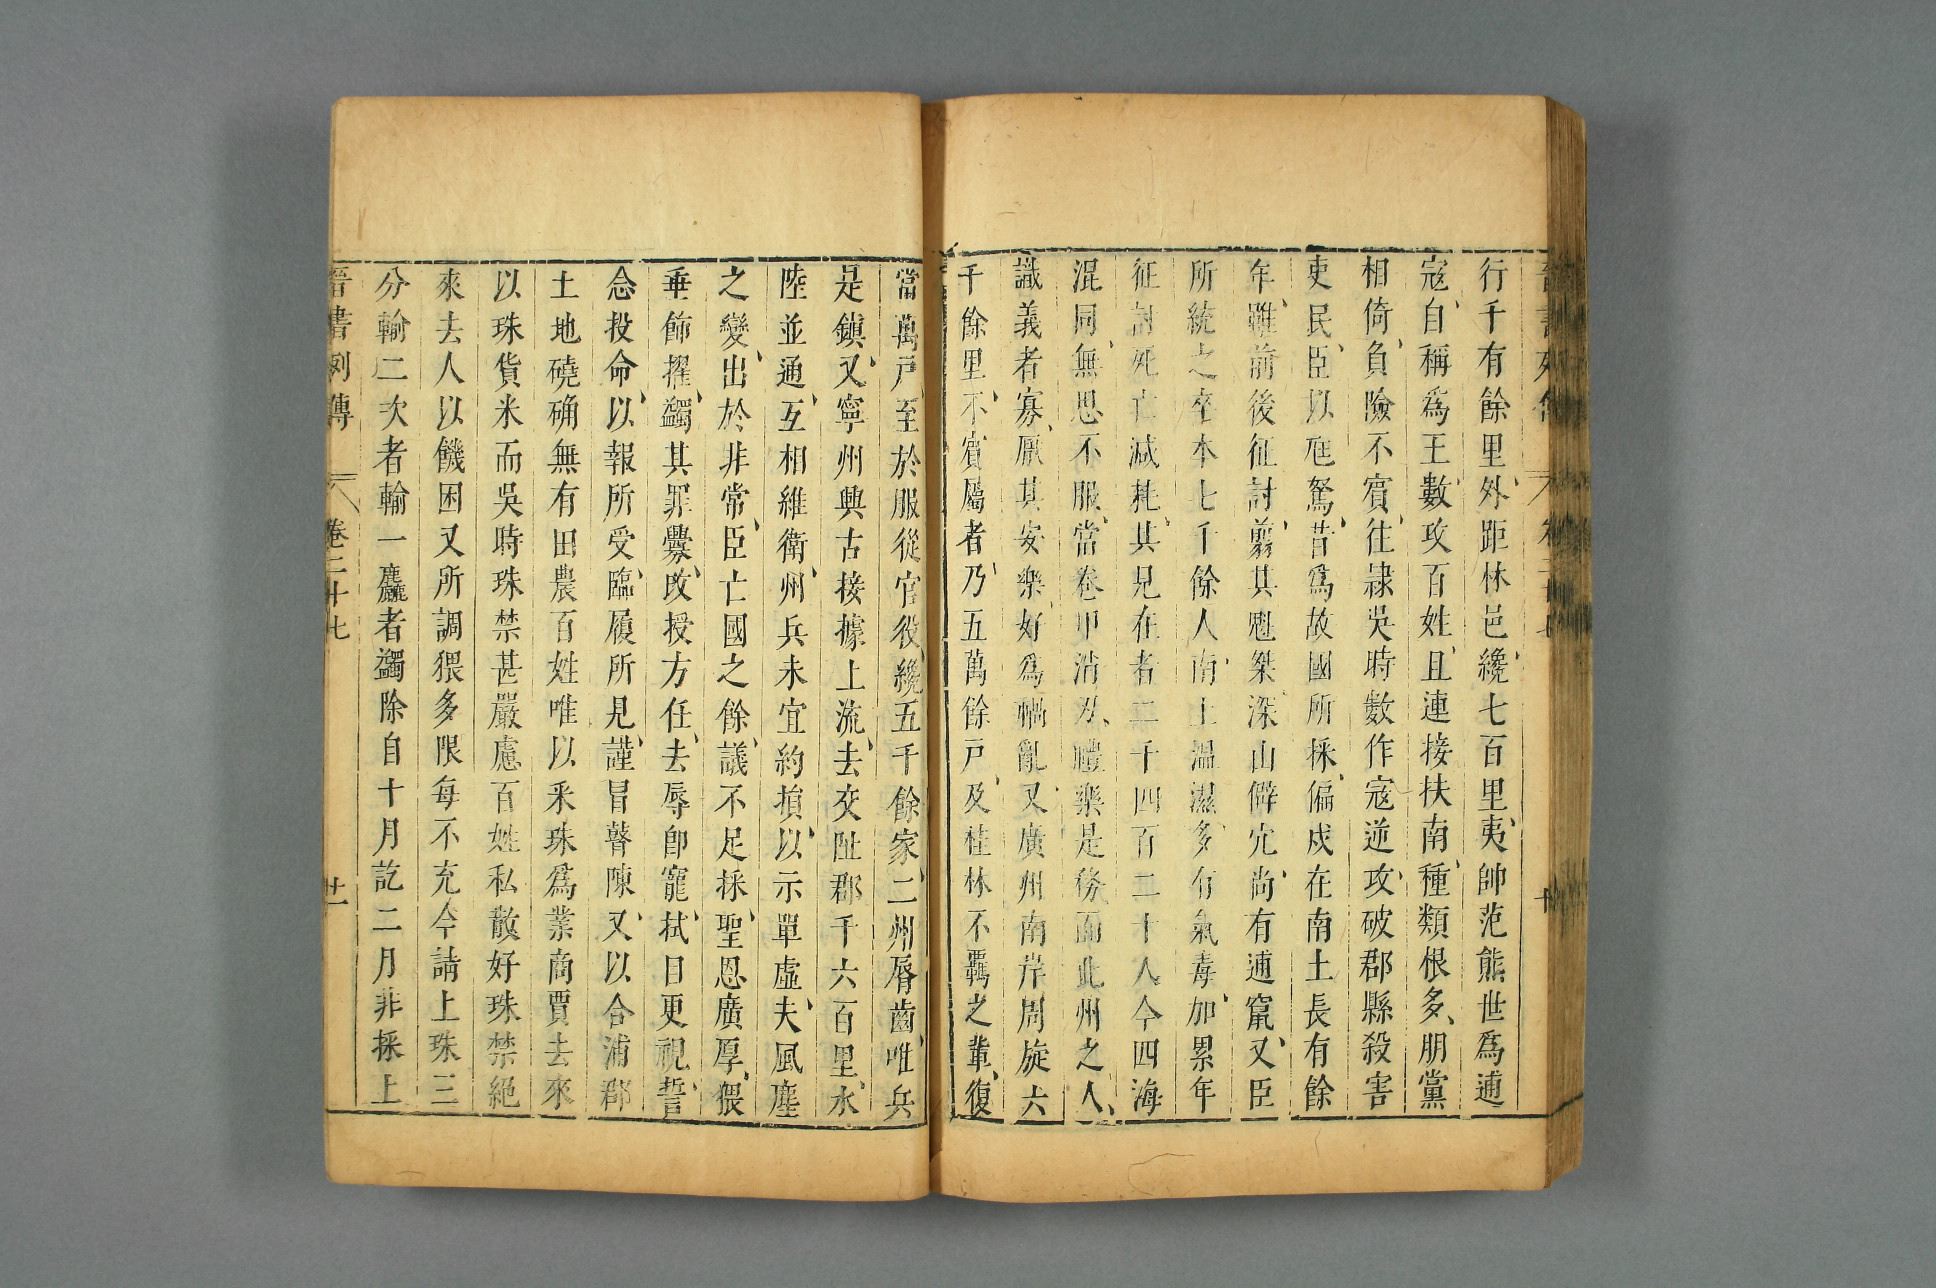 行千有餘里外距林邑纔七百里夷帥范熊世爲逋
寇自稱爲王數攻百姓且連接扶南種類根多朋黨
相倚負險不賓往隷吳時數作寇逆攻破郡縣殺害
吏民臣以尩駑昔爲故國所採偏戍在南土長有餘
年雖前後征討翦其魁桀深山僻宂尚有逋竄又臣
所統之卒本七千餘人南土溫濕多有氣毒加累年
征討死亡减耗其見在者二千四百二十人今四海
混同無思不服當卷甲消刃禮樂是務而此州之人
識義者寡厭其安樂好爲禍亂又廣州南岸周旋六
千餘里不賓屬者乃五萬餘戸及桂林不羈之輩復
當萬戸至於服從官役纔五千餘家二州脣齒唯兵
是鎭又寧州興古接據上流去交阯郡千六百里水
陸並通互相維衛州兵未宜約損以示單虛夫風塵
之變出於非常臣亡國之餘議不足採聖恩廣厚猥
垂飾擢蠲其罪釁改授方任去辱卽寵拭目更視誓
念投命以報所受臨履所見謹冒瞽陳又以合浦郡
土地磽确無有田農百姓唯以采珠爲業商賈去來
以珠貨米而吳時珠禁甚嚴慮百姓私散好珠禁絕
來去人以饑困又所調猥多限每不充今請上珠三
分輸二次者輸一麤者蠲除自十月訖二月非採上
晉書列傳 卷二十七 廿一